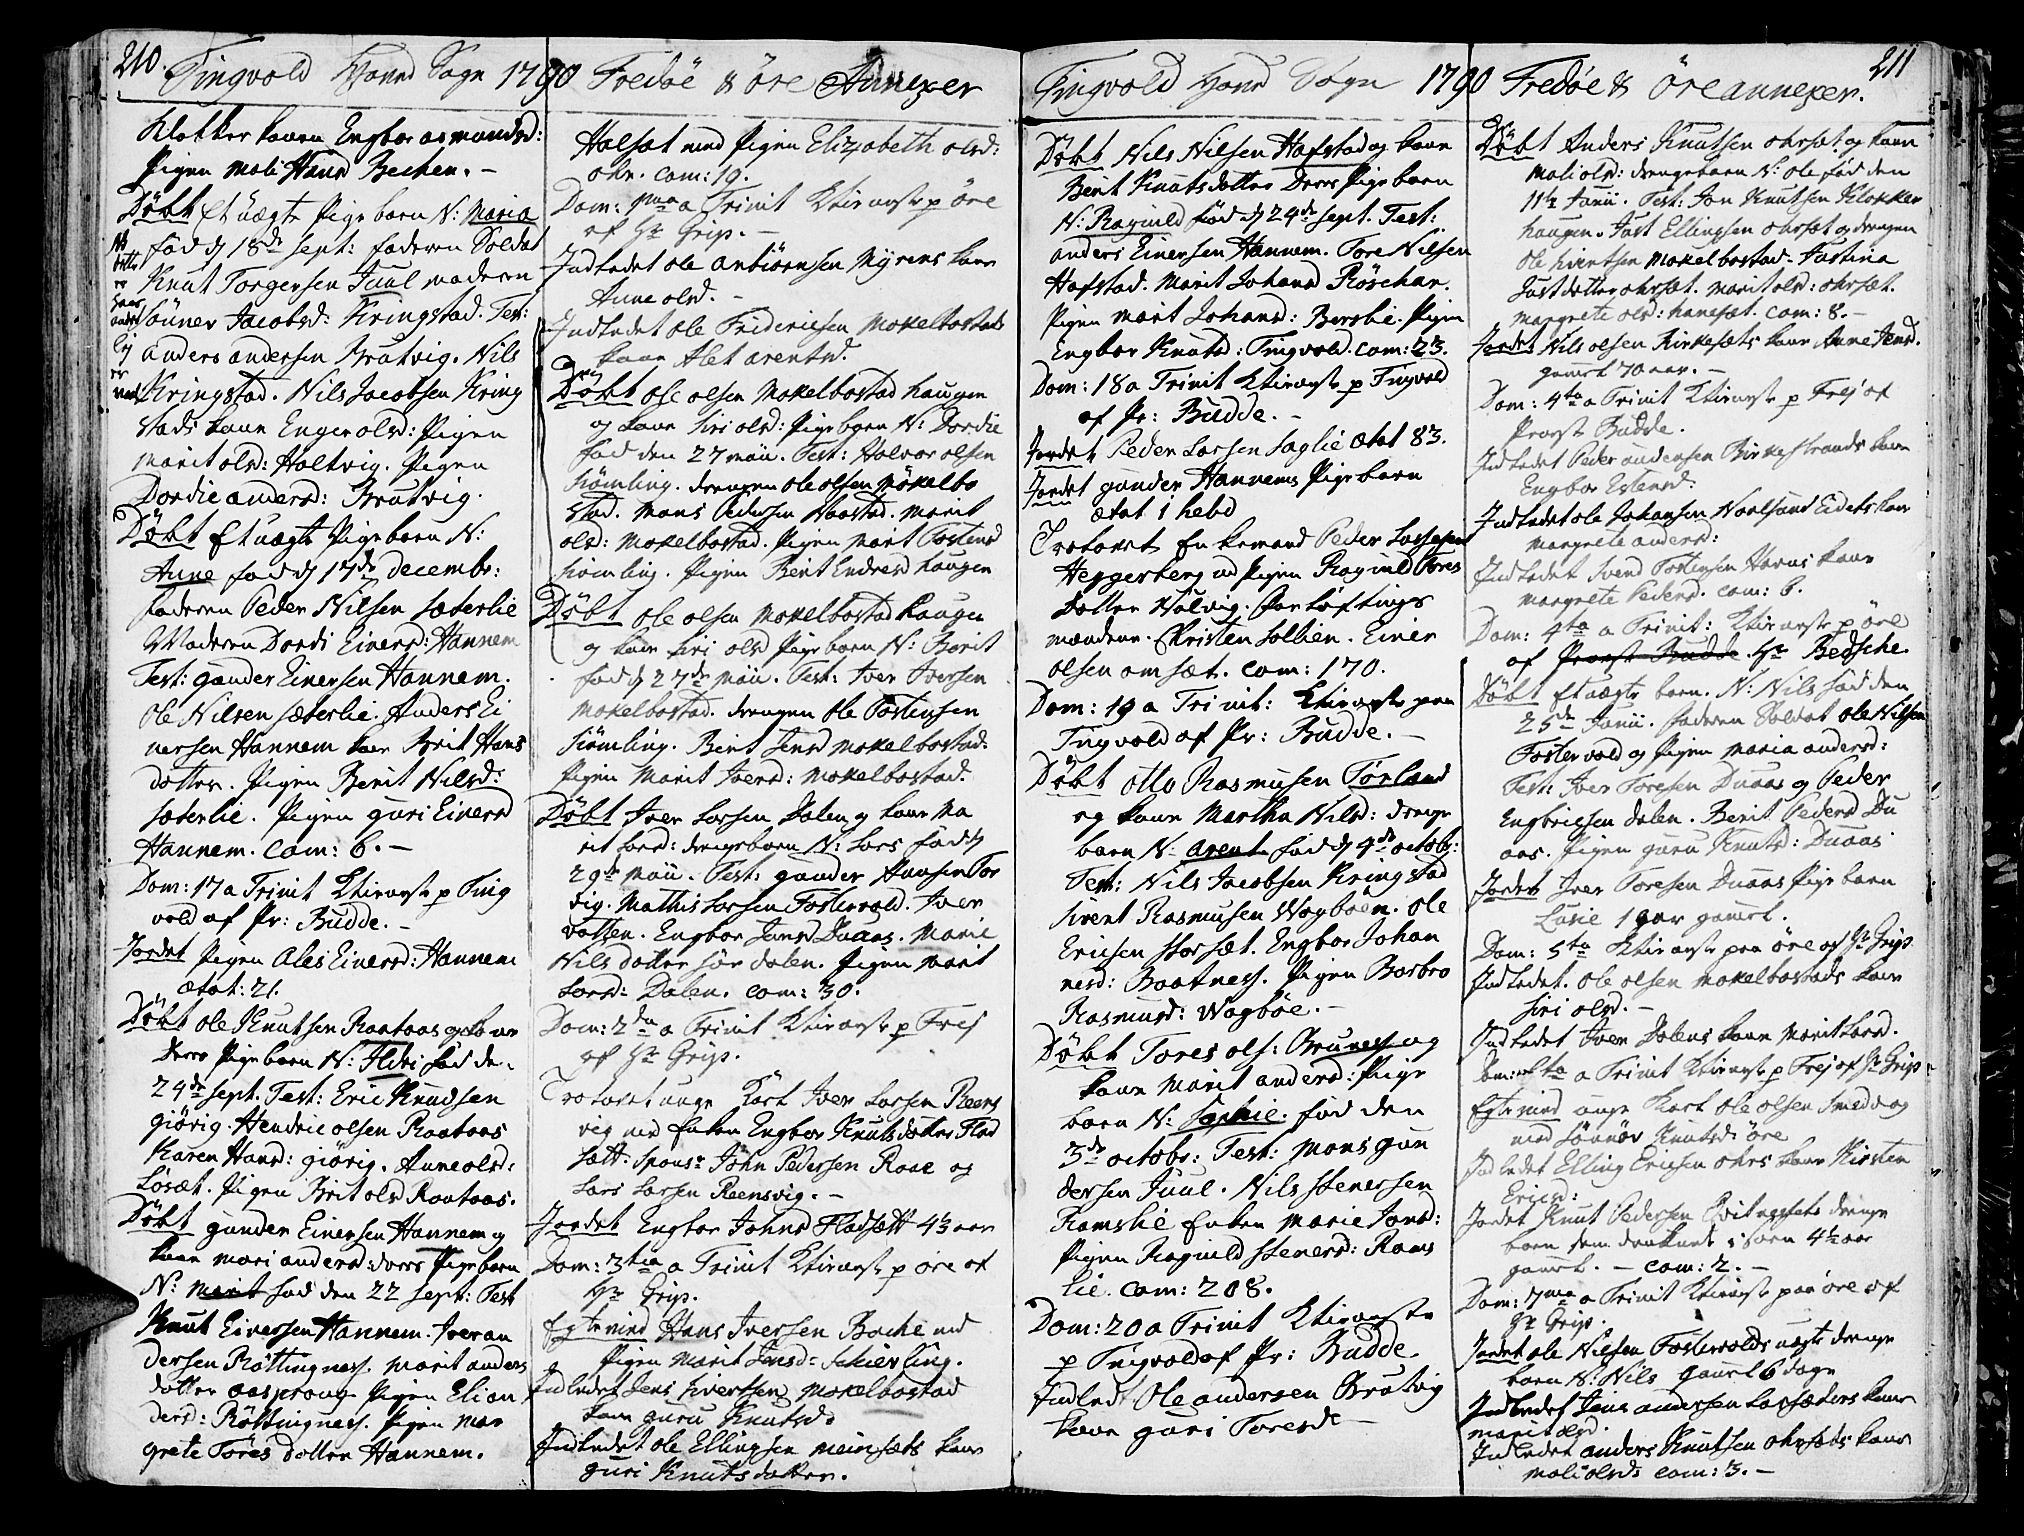 210. Tingvold Hoved Sogn 1790 Fredøe & Öre Annexer
Klokker konen Engbor asmundsd:
Pigen Mali Hansd Bechen. –
Döbt Et uægte Pigebarn N: Maria
fød d 18de sept: faderen Soldat
Knut Torgersen Juul moderen
Sönnev Jacobsd: Kringstad. Test:
anders andersen Brutvig. Nils
Kringstad. Nils Jacobsen Kring
stads kone Enger olsd: Pigen
Marit olsd: Holtvig. Pigen
Dordie andersd: Brutvig.
Döbt Et uægte Pigebarn N:
Anne fød d 17de decembr:
faderen Peder Nilsen Sæterlie
Moderen Dordi Einersd: Hannem
Test: gunder Einersen Hannem.
Ole Nilsen Sæterlie. Anders Ei
nersen Hannem kone Brit Hans
dotter. Pigen Berit Nilsd:
Sæterlie. Pigen guri Einersd
Hannem. Com: 6. –
Dom: 17 a Trinit Ktieneste p Ting
vold af Pr: Budde. –
Jordet Pigen Ales Einersd: Hannem
Ætat: 21.
Döbt Ole Knutsen Raataas og kone
deres Pigebarn N: Ildri fød de.
24de sept. Test: Eric Knudsen
giörig. Hendric olsen Raataas
Karen Hansd: giörig. Anne olsd:
Lösæt. Pigen Brit olsd Raataas.
Döbt gunder Einersen Hannem og
kone mari andersd: deres Pigebarn
N: Marit fød den 22 sept: Test
Knut Eiversen Hannem. Iver an
dersen Röttingness. Marit anders
dotter aasprong Pigen Eli an
dersd: Röttingness. Pigen Mar
grete Tores dotter Hannem.
Halsæt med Pigen Elizabeth olsd:
Ohr. Com: 19.
Dom: 1ma a Trinit Ktieneste p öre
af Hr Grip. –
Indledet Ole anbiörnsen Myrens kone
Anne olsd. –
Indledet Ole Fridericsen Mokelbostads
kone Alet arentsd.
Döbt Ole olsen Mokelbostad haugen
og kone Siri olsd: Pigebarn N: Dordie
fød den 27 Maii. Test: Halvor olsen
Strömling. drengen ole olsen Mökelbo
stad. Mons Pedersen Naastad. Marit
olsd: Mokelbostad. Pigen Marit Tostensd
Strömling. Pigen Berit Endresd haugen
Döbt Ole olsen Mokelbostad haugen
og kone Siri olsd Pigebarn N: Borit
fød d 27de Maii. Test: Iver Iversen
Mokelbostad. drengen Ole Tostensen
Strömling. Berit Jensd Mokelbostad.
Pigen Marit Iversd: Mokelbostad.
Döbt Iver Larsen Dalen og kone Ma
rit Larsd: drengebarn N: Lars fød d
29de Maii. Test: gunder Hansen Tor
vig. Mathis Larsen Fostervold. Iver
Vatten. Engbor Jensd Duaas. Marie
Nils dotter för Dalen. Pigen Marit
Larsd: Dalen. Com: 30.
Dom: 2da a Trinit Ktieneste p Frej
af Hr Grip.
Trolovet unge Karl Iver Larsen Reens
vig med Enken Engbor Knutsdotter Flad
sett. Spons: John Pedersen Roae og
Lars Larsen Reensvig. –
Jordet Engbor Johnsd Fladsett 43 aar
Dom: 3tia a Trinit Ktieneste p öre af
Hr Grip.
Egteviedt Hans Iversen Bache med
Pigen Marit Jensd: Schierling.
Indledet Jens Sivertsen Mokelbostad
kone guru Knutsd:
Indledet Ole Ellingsen Meinsæts kone
guri Knutsdotter.
Tingvold Hoved Sogn 1790 Fredøe & Öre annexer. 211
Döbt Nils Nilsen Hafstad og kone
Berit Knutsdotter deres Pigebarn
N: Ragnild fød d 24de sept. Test:
anders Einersen Hannem. Tore Nilsen
Hafstad. Marit Johansd Röschar.
Pigen Marit Johansd: Bersbie. Pigen
Engbor Knutsd: Tingvold. Com: 23.
Dom: 18 a Trinit Ktieneste p Tingvold
af Pr: Budde. –
Jordet Peder Larsen Saglie Ætat 83.
Jordet gunder Hannems Pigebarn
Ætat 1 hebd
Trolovet Enkemand Peder Lassesen
Heggerberg ved Pigen Ragnild Tores
dotter Holvig. Forløftings
mændene. Christen Solbien. Einer
olsen omsæt. Com: 170.
Dom: 19 a Trinit: Ktieneste paa
Tingvold af Pr: Budde. –
Döbt Otto Rasmusen Torland
og kone Martha Nilsd: drenge
barn N: Arent fød d 4de octobr:
Test: Nils Jacobsen Kringstad
Sivert Rasmusen Wogböen. Ole
Ericsen Storsæt. Engbor Johan
nesd: Baatness. Pigen Barbro
Rasmusd: Wogböe. –
Döbt Tores ols: Bruness og
kone Marit andersd: Pige
barn N: Sophie. fød den
3de octobr: Test: Mons gun
dersen Juul. Nils Stenersen
Ramslie Enken Marie Jonsd:
Pigen Ragnild Stenersd: Rams
lie. Com: 208.
Dom: 20 a Trinit Ktieneste
p Tingvold af Pr: Budde.
Indledt Ole andersen Brutvig
kone guri Toresd –
Döbt Anders Knutsen Ohrsæt og kone
Mali olsd: drengebarn N: Ole fød den
11te Junii. Test: Jon Knutsen Klokker
haugen. Just Ellingsen Ohrsæt og drengen
Ole Sivertsen Mokelbostad. Justina
Justdotter Ohrsæt. Marit olsd: Ohrsæt.
Margrete olsd: hanesæt. Com: 8. –
Jordet Nils olsen Kirkesæts kone Anne Jensd.
gamel 70 aar. –
Dom: 4ta a Trinit Ktieneste p Frej af
Provst Budde.
Indledet Peder andersen Birkestrands kone
Engbor Estensd:
Indledet Ole Johansen Noelsund Eidets kone
Margrete andersd:
Indledet Svend Tostensen Harus kone
Margrete Pedersd. Com: 6.
Dom: 4ta a Trinit: Ktieneste p öre
af Provst Budde Hr Bedsche.
Döbt Et uægte barn. N: Nils fød den
25de Junii. faderen Soldat Ole Nilsen
Fostervold og Pigen Maria andersd:
Test: Iver Toresen Duaas og Peder
Engbricsen Dalen. Berit Pedersd Du
aas. Pigen guru Knutsd: Duaas
Jordet Iver Toresen Duaas Pigebarn
Lusie 1 aar gamel.
Dom: 5ta Ktieneste paa öre af Hr Grip
Indledet Ole olsen Mokelbostads kone
Siri olsd. –
Indledet Iver Dalens kone Marit Larsd.
Dom: 6ta a Trinit Ktieneste p Frej af Hr Grip
Egteviedt unge Karl Ole olsen Smedvog
med Sönnöv Knutsd: öre
Indledet Elling Ericsen Ohrs kone Kirsten
Ericsd:
Jordet Knut Pedersen Qvitnessets drenge
barn som druknede i Söen 4½ aar
gamel. – Com: 2. –
Dom: 7ma a Trinit Ktieneste paa öre af
Hr Grip.
Jordet Ole Nilsen Fostervolds uægte drenge
barn N: Nils gamel 6 dage
Indledet Jens andersen Larsæters kone
Marit olsd.
Indledet Anders Knutsen Ohrsæts kone
Mali olsd: Com: 3. –